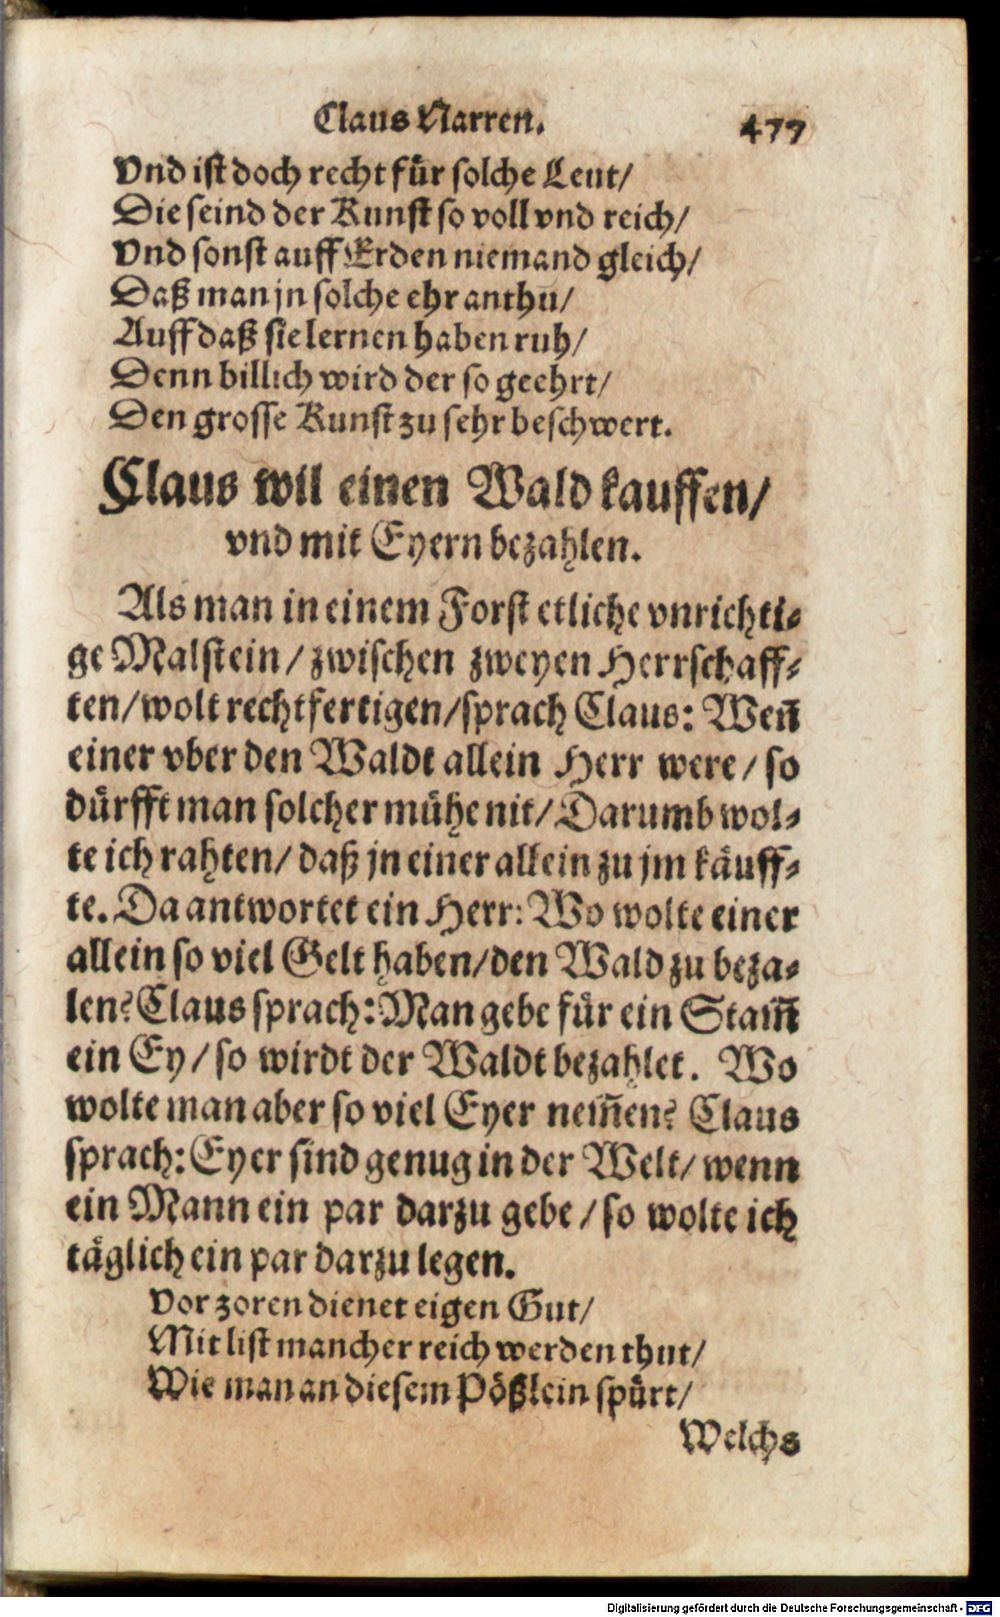 Claus Narren. 477
Vnd ist doch recht für solche Leut/
Die seind der Kunst so voll vnd reich/
Vnd sonst auff Erden niemand gleich/
Daß man jn solche ehr anthu/
Auff daß sie lernen haben ruh/
Denn billich wird der so geehrt/
Den grosse Kunst zu sehr beschwert.
Claus wil einen Wald kauffen/
vnd mit Eyern bezahlen.
Als man in einem Forst etliche vnrichti⸗
ge Malstein/ zwischen zweyen Herrschaff⸗
ten/ wolt rechtfertigen/ sprach Claus: Weñ
einer vber den Waldt allein Herr were/ so
dürfft man solcher mühe nit/ Darumb wol⸗
te ich rahten/ daß jn einer allein zu jm käuff⸗
te. Da antwortet ein Herr: Wo wolte einer
allein so viel Gelt haben/ den Wald zu beza⸗
len? Claus sprach: Man gebe für ein Stam̃
ein Ey/ so wirdt der Waldt bezahlet. Wo
wolte man aber so viel Eyer nem̃en? Claus
sprach: Eyer sind genug in der Welt/ wenn
ein Mann ein par darzu gebe/ so wolte ich
täglich ein par darzu legen.
Vor zoren dienet eigen Gut/
Mit list mancher reich werden thut/
Wie man an diesem Pößlein spürt/
Welchs
Digitalisierung gefördert durch die Deutsche Forschungsgemeinschaft - DFG